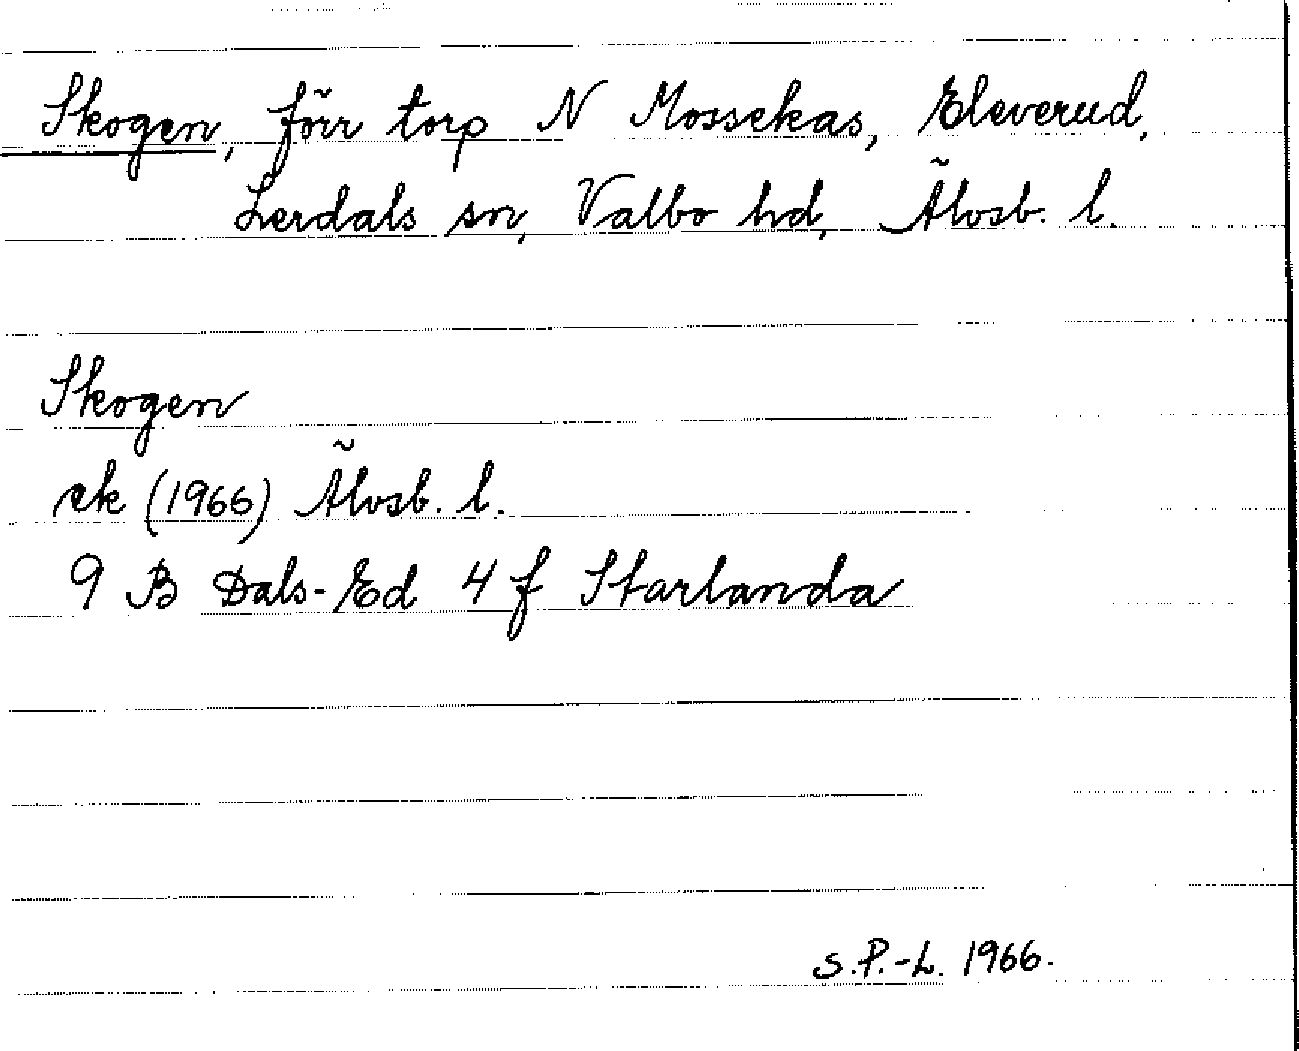 Skogen, förr torp N Mossekas, Eleverud,
Lerdals sn, Valbo hd, Älvsb. l.
Skogen
ek (1966) Älvsb. l.
9 B Dals-Ed 4 f Starlanda
S.P.-L. 1966.